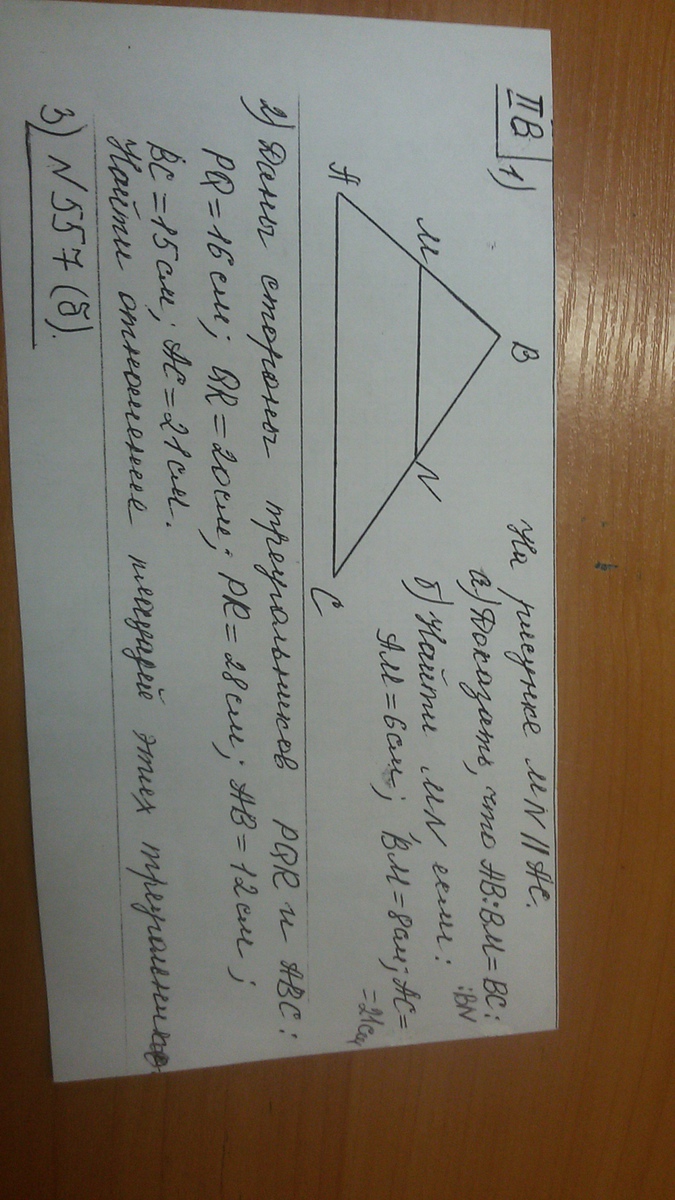 IIВ 1)
На рисунке MN || AC.
а) Доказать, что AB:BM = BC:
:BN
б) Найти MN если:
AM = 6 см; BM = 8 см; AC =
= 21 см
B
M
N
A
C
2) Даны стороны треугольников PQR и ABC:
PQ = 16 см; QR = 20 см; PR = 28 см; AB = 12 см;
BC = 15 см; AC = 21 см.
Найти отношение площадей этих треугольников.
3) N 557 (б).